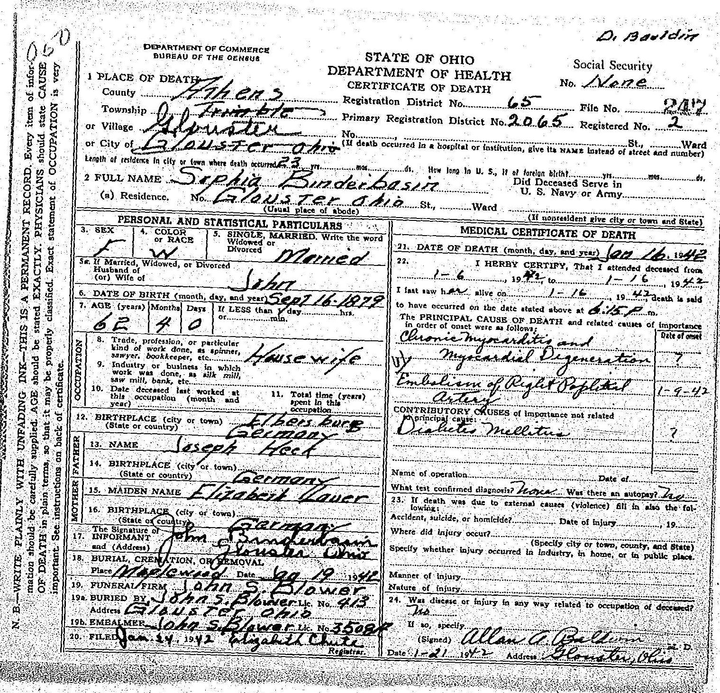 D. Bauldin
050
DEPARTMENT OF COMMERCE
BUREAU OF THE CENSUS
STATE OF OHIO
DEPARTMENT OF HEALTH
CERTIFICATE OF DEATH
Social Security
No. None
1 PLACE OF DEATH
County Athens
Registration District No. 65 File No. 247
Township Trimble
Primary Registration District No. 2065 Registered No. 2
or Village Glouster
No. St., Ward
or City of Glouster Ohio (If death occurred in a hospital or institution, give its NAME instead of street and number)
Length of residence in city or town where death occurred 23 yrs. mos. ds. How long in U. S., if of foreign birth? yrs. mos. ds.
2 FULL NAME Sophia Binderbasin Did Deceased Serve in
U. S. Navy or Army
(a) Residence. No. Glouster Ohio St., Ward
(Usual place of abode) (If nonresident give city or town and State)
PERSONAL AND STATISTICAL PARTICULARS
3. SEX F 4. COLOR or RACE W 5. SINGLE, MARRIED, Write the word Widowed or Divorced Married
5a. If Married, Widowed, or Divorced
Husband of
(or) Wife of John
6. DATE OF BIRTH (month, day, and year) Sept 16-1879
7. AGE (years) Months Days If LESS than 1 day hrs.
or min.
4 0
OCCUPATION
8. Trade, profession, or particular
kind of work done, as spinner,
sawyer, bookkeeper, etc. House wife
9. Industry or business in which
work was done, as silk mill,
saw mill, bank, etc.
10. Date deceased last worked at
this occupation (month and
year)
11. Total time (years)
spent in this
occupation
12. BIRTHPLACE (city or town) Elbersburg
(State or country) Germany
FATHER
13. NAME Joseph Heck
14. BIRTHPLACE (city or town)
(State or country) Germany
MOTHER
15. MAIDEN NAME Elizabeth
16. BIRTHPLACE (city or town)
(State or country) Germany
17. The Signature of
INFORMANT John Binderbasin
and (Address) Glouster Ohio
18. BURIAL, CREMATION, OR REMOVAL
Place Maplewood Date Jan 19 1942
19. FUNERAL FIRM John S. Blower
19a. BURIED BY John S. Blower Lic. No. 413
Address Glouster Ohio
19b. EMBALMER John S. Blower Lic. No. 3508A
20. FILED Jan. 24, 1942 Elizabeth Chute
Registrar.
MEDICAL CERTIFICATE OF DEATH
21. DATE OF DEATH (month, day, and year) Jan 16, 1942
22. I HERBY CERTIFY, That I attended deceased from
1-6, 1942 to 1-16, 1942
I last saw her alive on 1-16, 1942 death is said
to have occurred on the date stated above at 6:15 P m.
THE PRINCIPAL CAUSE OF DEATH and related causes of importance
in order of onset were as follows: Date of onset
Chronic Myocarditis and
Myocardial Degeneration ?
Embolism of Right Popliteal
Artery 1-9-42
CONTRIBUTORY CAUSES of importance not related
to principal cause:
Diabetes Mellitus ?
Name of operation Date of
What test confirmed diagnosis? None Was there an autopsy? No
23. If death was due to external causes (violence) fill in also the fol-
lowing:
Accident, suicide, or homicide? Date of injury , 19
Where did injury occur?
(Specify city or town, county, and State)
Specify whether injury occurred in industry, in home, or in public place.
Manner of injury
Nature of injury
24. Was disease or injury in any way related to occupation of deceased?
No
If so, specify
(Signed) Allan A. Baldwin M. D.
Date 1-21 1942 Address Glouster, Ohio
N. B.—WRITE PLAINLY WITH UNFADING INK—THIS IS A PERMANENT RECORD. Every item of infor-
mation should be carefully supplied. AGE should be stated EXACTLY. PHYSICIANS should state CAUSE
OF DEATH in plain terms, so that it may be properly classified. Exact statement of OCCUPATION is very
important. See instructions on back of certificate.